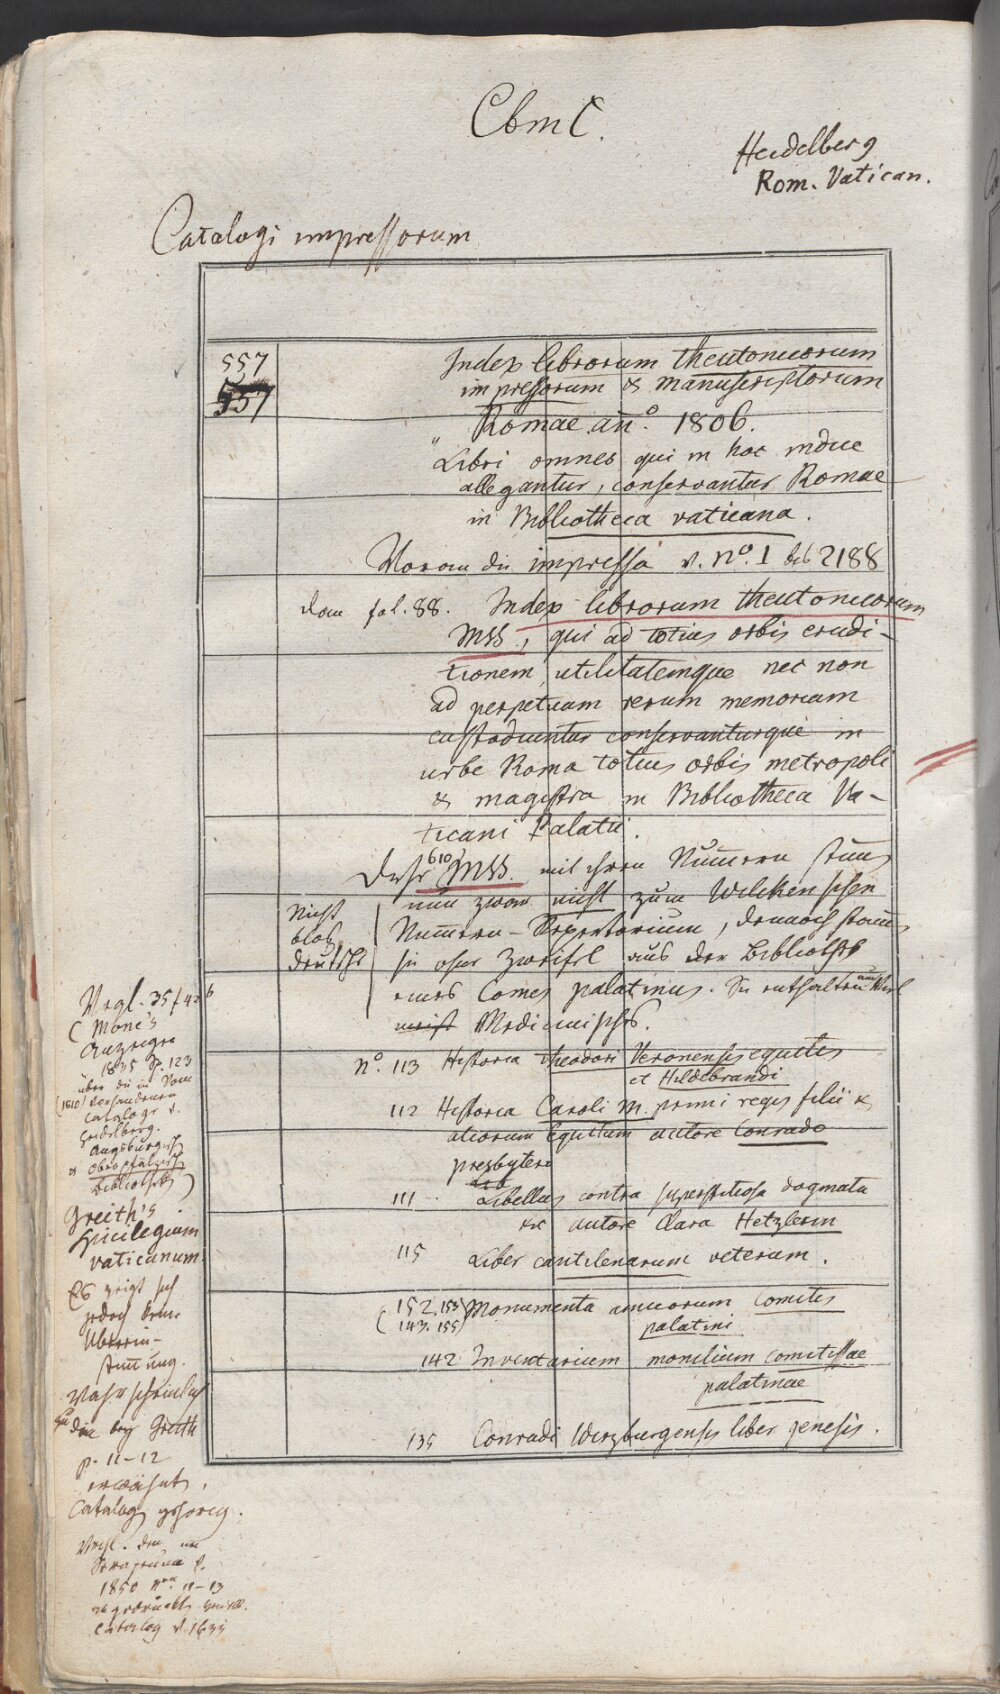 Cbm C.
Heidelberg
Rom. Vatican.
Catalogi impressorum
557
557
Index librorum theutonicorum
impressorum & manuscriptorum
Romae anno. 1806.
"Libri omnes qui in hoc indice
allegantur, conservantur Romae
in Bibliotheca vaticana.
Woran die impressa v. No. 1 bis 2188
dann fol. 88. Index librorum theutonicorum
MSS, qui ad totius orbis erudi-
tionem utilitatemque nec non
ad perpetuam rerum memoriam
custodiuntur conservanturque in
urbe Roma totius orbis metropoli
& magistra in Bibliotheca Va-
ticani Palatii.
Diese 610 MSS. mit ihren Num̄ern stim̄en
nun zwar nicht zum Wilckenschen
Num̄ern-Repertorium, dennoch stam̄en
sie ohne Zweifel aus der Bibliothek
eines Comes palatinus. Sie enthalten auch viel
meist Medicinisches.
Nicht
blos
deutsche
No. 113 Historia Theodori Veronensis equitis
et Hildebrandi
112 Historia Caroli M. primi regis filii &
aliorum equitum autore Conrado
presbytero
111 Libellus contra superstitiosa dogmata
&c autore Clara Hetzlerin
115 Liber cantilenarum veterum.
(152. 153) Monumenta amicorum comitis
(143. 155) palatini
142 Inventarium monilium comitissae
palatinae
135 Conradi Wirzburgensis liber genesis.
Vergl. 35/426
(Mone's
Anzeiger
1835 p. 123
über die in Rom
(1810) vorhandenen
Cataloge v.
Heidelberg.
Augsburgisch
& Oberpfälzisch
Bibliothek)
Greith's
Spicilegium
vaticanum.
Es zeigt sich
jedoch keine
Überein-
stim̄ung.
Wahrscheinlich
zu dem bey Greith
p. 11-12
erwähnten
Catalog gehörig.
Vergl. den im
Serapeum v.
1850 Nro. 11-13
abgedruckten
Catalog v. 1635